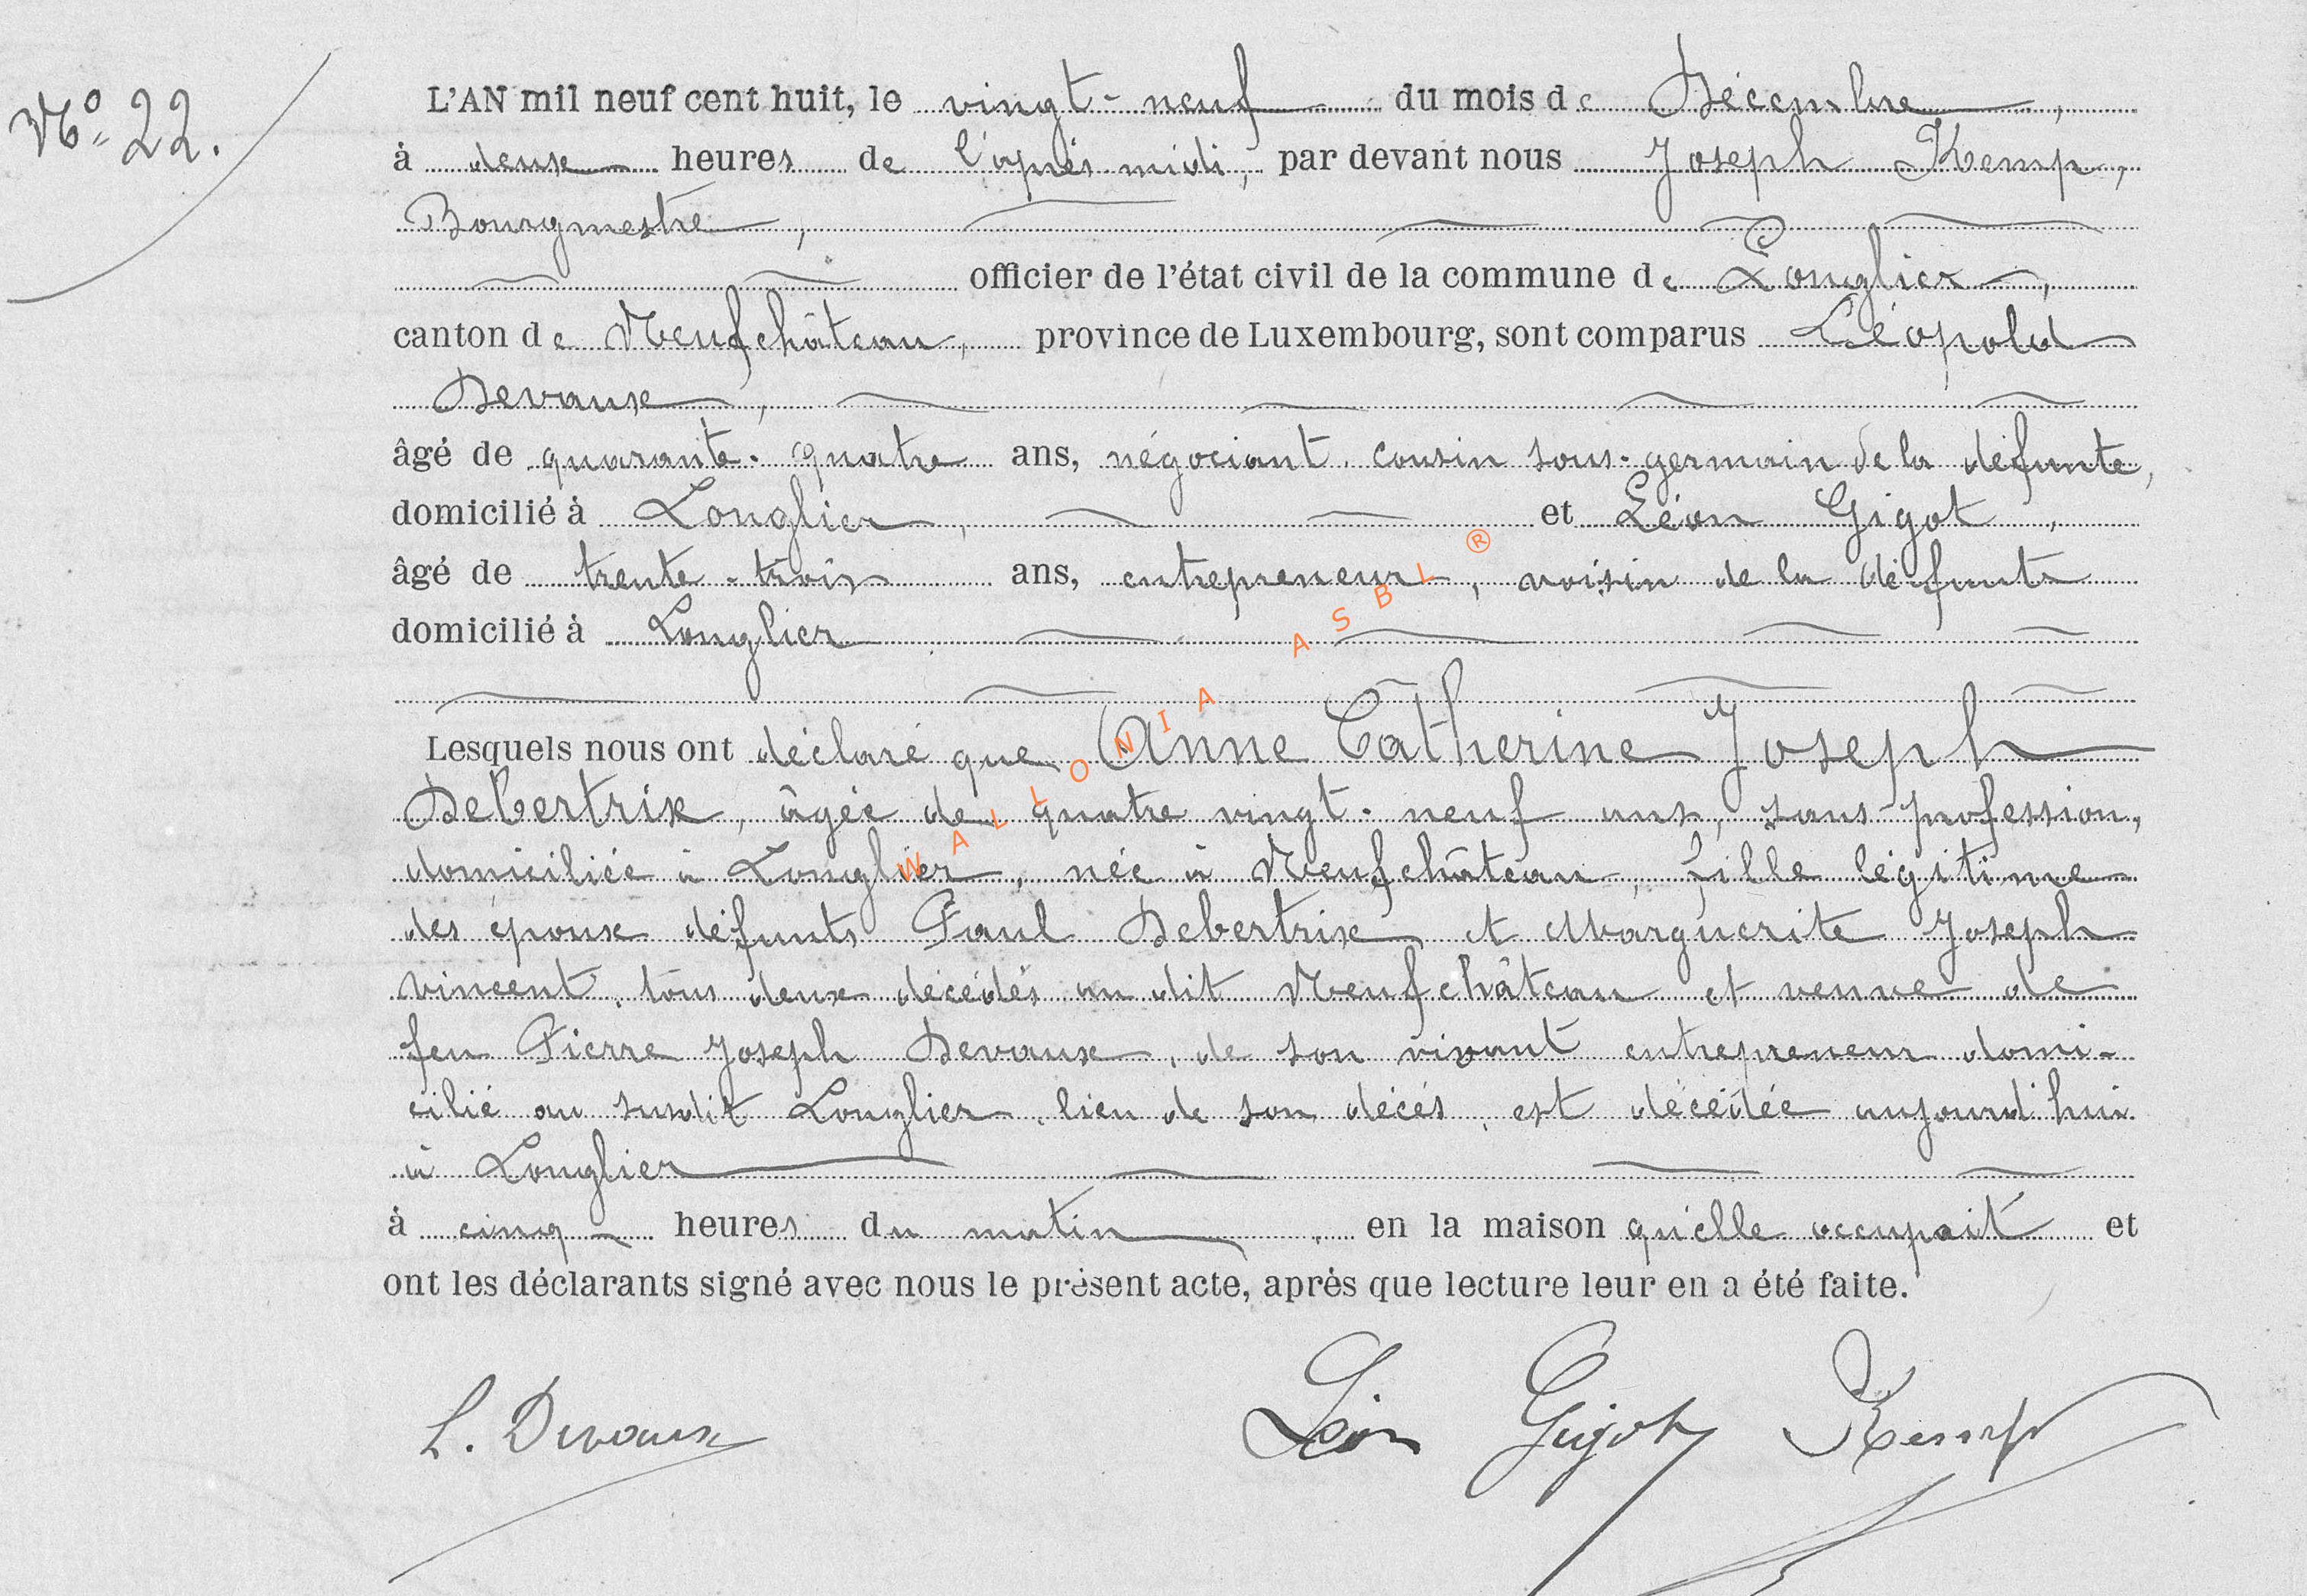 N° 22.
L'AN mil neuf cent huit, le vingt-neuf du mois de Décembre,
à deux heures de l'après midi, par devant nous Joseph Kemp,
Bourgmestre,
officier de l'état civil de la commune de Longlier,
canton de Neufchâteau, province de Luxembourg, sont comparus Léopold
Devaux,
âgé de quarante-quatre ans, négociant, cousin sous-germain de la défunte,
domicilié à Longlier, et Léon Gigot,
âgé de trente-trois ans, entrepreneur, voisin de la défunte
domicilié à Longlier
Lesquels nous ont déclaré que Anne Catherine Joseph
Debertrix, âgée de quatre vingt-neuf ans, sans profession,
domiciliée à Longlier, née à Neufchâteau, fille légitime
des époux défunts Paul Debertrix et Marguerite Joseph
Vincent, tous deux décédés au dit Neufchâteau et veuve de
feu Pierre Joseph Devaux, de son vivant entrepreneur domi-
cilié au susdit Longlier, lieu de son décès, est décédée aujourd'hui
à Longlier
à cinq heures du matin, en la maison qu'elle occupait et
ont les déclarants signé avec nous le présent acte, après que lecture leur en a été faite.
L. Devaux Léon Gigot Kemp
WALLONIA ASBL ®